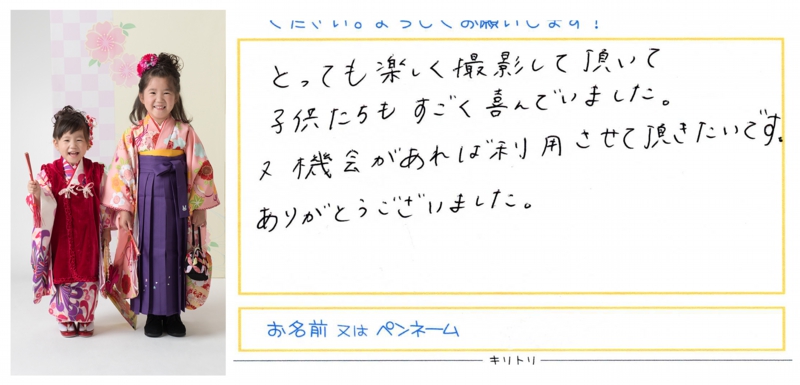 ください。よろしくお願いします！
とっても楽しく撮影して頂いて
子供たちも すごく喜んでいました。
又 機会があれば利用させて頂きたいです。
ありがとうございました。
お名前 又は ペンネーム
キリトリ